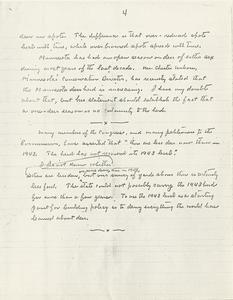 4
deer on spots. The difference is that over-reduced spots
heals with time, while over-browsed spots spread with time.
Minnesota has had an open season on deer of either sex
during most years of the last decade. Mr. Chester Wilson,
Minnesota Conservation Director, has recently stated that
the Minnesota deer herd is increasing. I have my doubts
about that, but his statement should establish the fact that
an over-deer season is no calamity to the herd.
Many members of the Congress, and many petitioners to the
Commission, have asserted that "there are less deer now than in
1942. The herd has not recovered its 1942 level."
I do not know whether
there are less deer, but our survey of yards shows there is entirely
less food. The state could not possibly carry the 1942 herd
for more than a few years. To use the 1942 herd as a starting
point for building policy is to deny everything the world has
learned about deer.